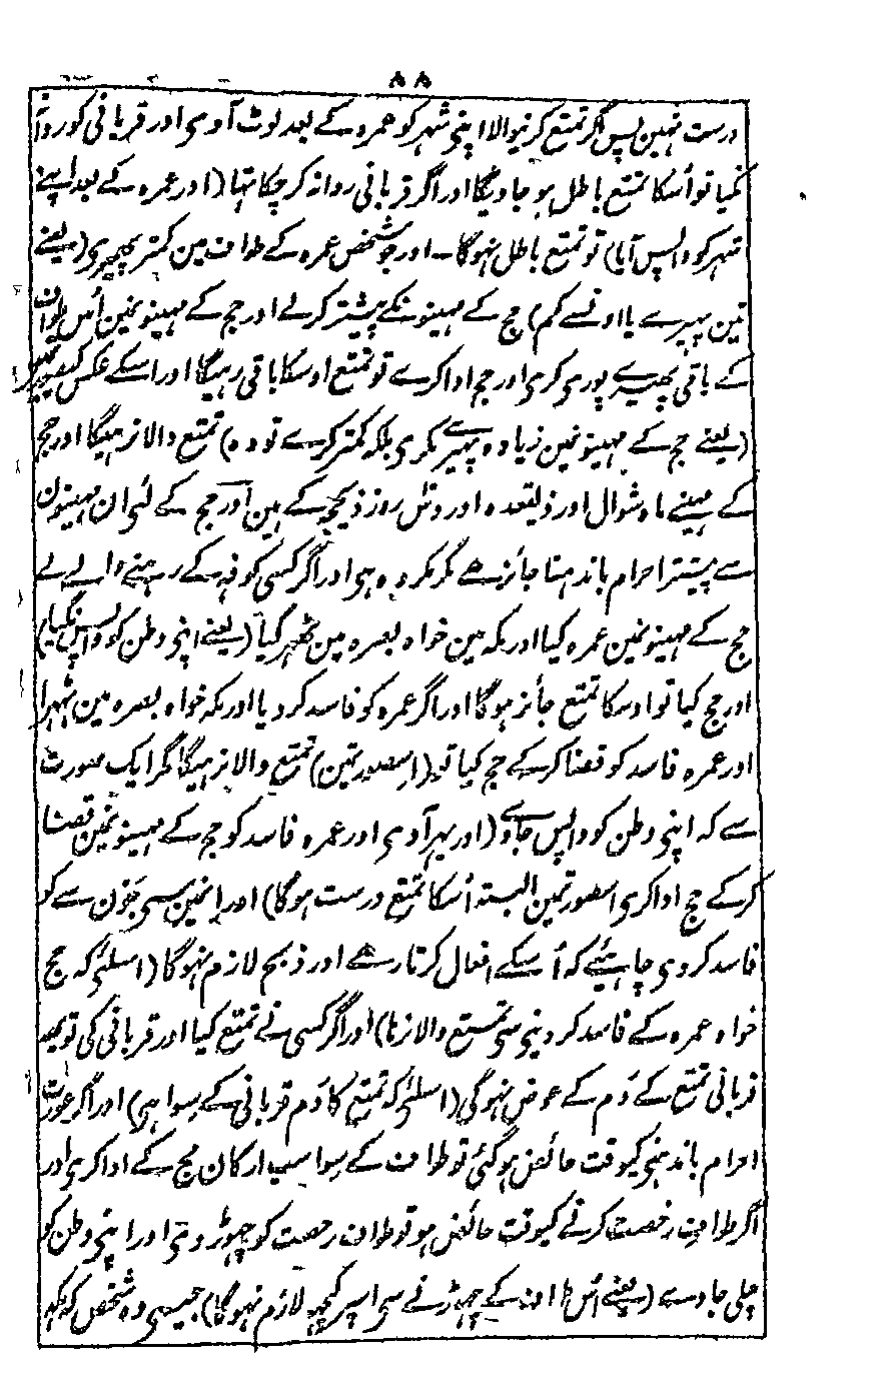 ۸۸
درست نہین پس اگر تمتع کرنیوالا اپنی شہر کو عمرہ کے بعد لوٹ آوی اور قربانی کو روانہ
نکیا تو اُسکا تمتع باطل ہو جاویگا اور اگر قربانی روانہ کرچکا تہا (اور عمرہ کے بعد اپنے
شہر کو واپس آیا) تو تمتع باطل نہوگا۔ اور جو شخص عمرہ کے طواف مین کمتر پھیری (یعنے
تین پھیرے یا اوسنے کم) حج کے مہینونکے پیشتر کرلے اور حج کے مہینونمین اُس طواف
کے باقی پھیرے پوری کری اور حج ادا کرے تو تمتع اوسکا باقی رہیگا اور اسکے عکس کیصورت مین
(یعنے حج کے مہینونمین زیادہ پھیرے نکری بلکہ کمتر کرے تو وہ) تمتع والا نرہیگا اور حج
کے مہینے ماہ شوال اور ذیقعدہ اور دش روز ذیحجہ کے ہین اور حج کے لئی ان مہینون
سے پیشتر احرام باندہنا جائز ہے مگر مکروہ ہی اور اگر کسی کوفہ کے رہنے والے نے
حج کے مہینونمین عمرہ کیا اور مکہ مین خواہ بصرہ مین ٹھہر گیا (یعنے اپنی وطن کو واپس نگیا)
اور حج کیا تو اوسکا تمتع جائز ہوگا اور اگر عمرہ کو فاسد کر دیا اور مکہ خواہ بصرہ مین ٹہہرا
اور عمرہ فاسد کو قضا کرکے حج کیا تو (اسصورتمین) تمتع والا نرہیگا مگر ایک صورت
سے کہ اپنی وطن کو واپس جاوے (اور پہر آوی اور عمرہ فاسد کو حج کے مہینونمین قضا
کرکے حج ادا کری اسصورتمین البتہ اُسکا تمتع درست ہوگا) اور انمین سی جون سے کو
فاسد کر دی چاہئیے کہ اُسکے افعال کرتا رہے اور ذبح لازم نہوگا (اسلئی کہ حج
خواہ عمرہ کے فاسد کر دینی سی تمتع والا نرہا) اور اگر کسی نے تمتع کیا اور قربانی کی تو یہ
قربانی تمتع کے دَم کے عوض نہوگی (اسلئی کہ تمتع کا دَم قربانی کے سوا ہی) اور اگر عورت
احرام باندہنی کیوقت حائض ہوگئی تو طواف کے سوا سب ارکان حج کے ادا کری اور
اگر طواف رخصت کرنے کیوقت حائض ہو تو طواف رخصت کو چہوڑ دی اور اپنی وطن کو
چلی جاوے (یعنے اُس طواف کے چہوڑنے سی اسپر کچہہ لازم نہوگا) جیسی وہ شخص کہ مکہ